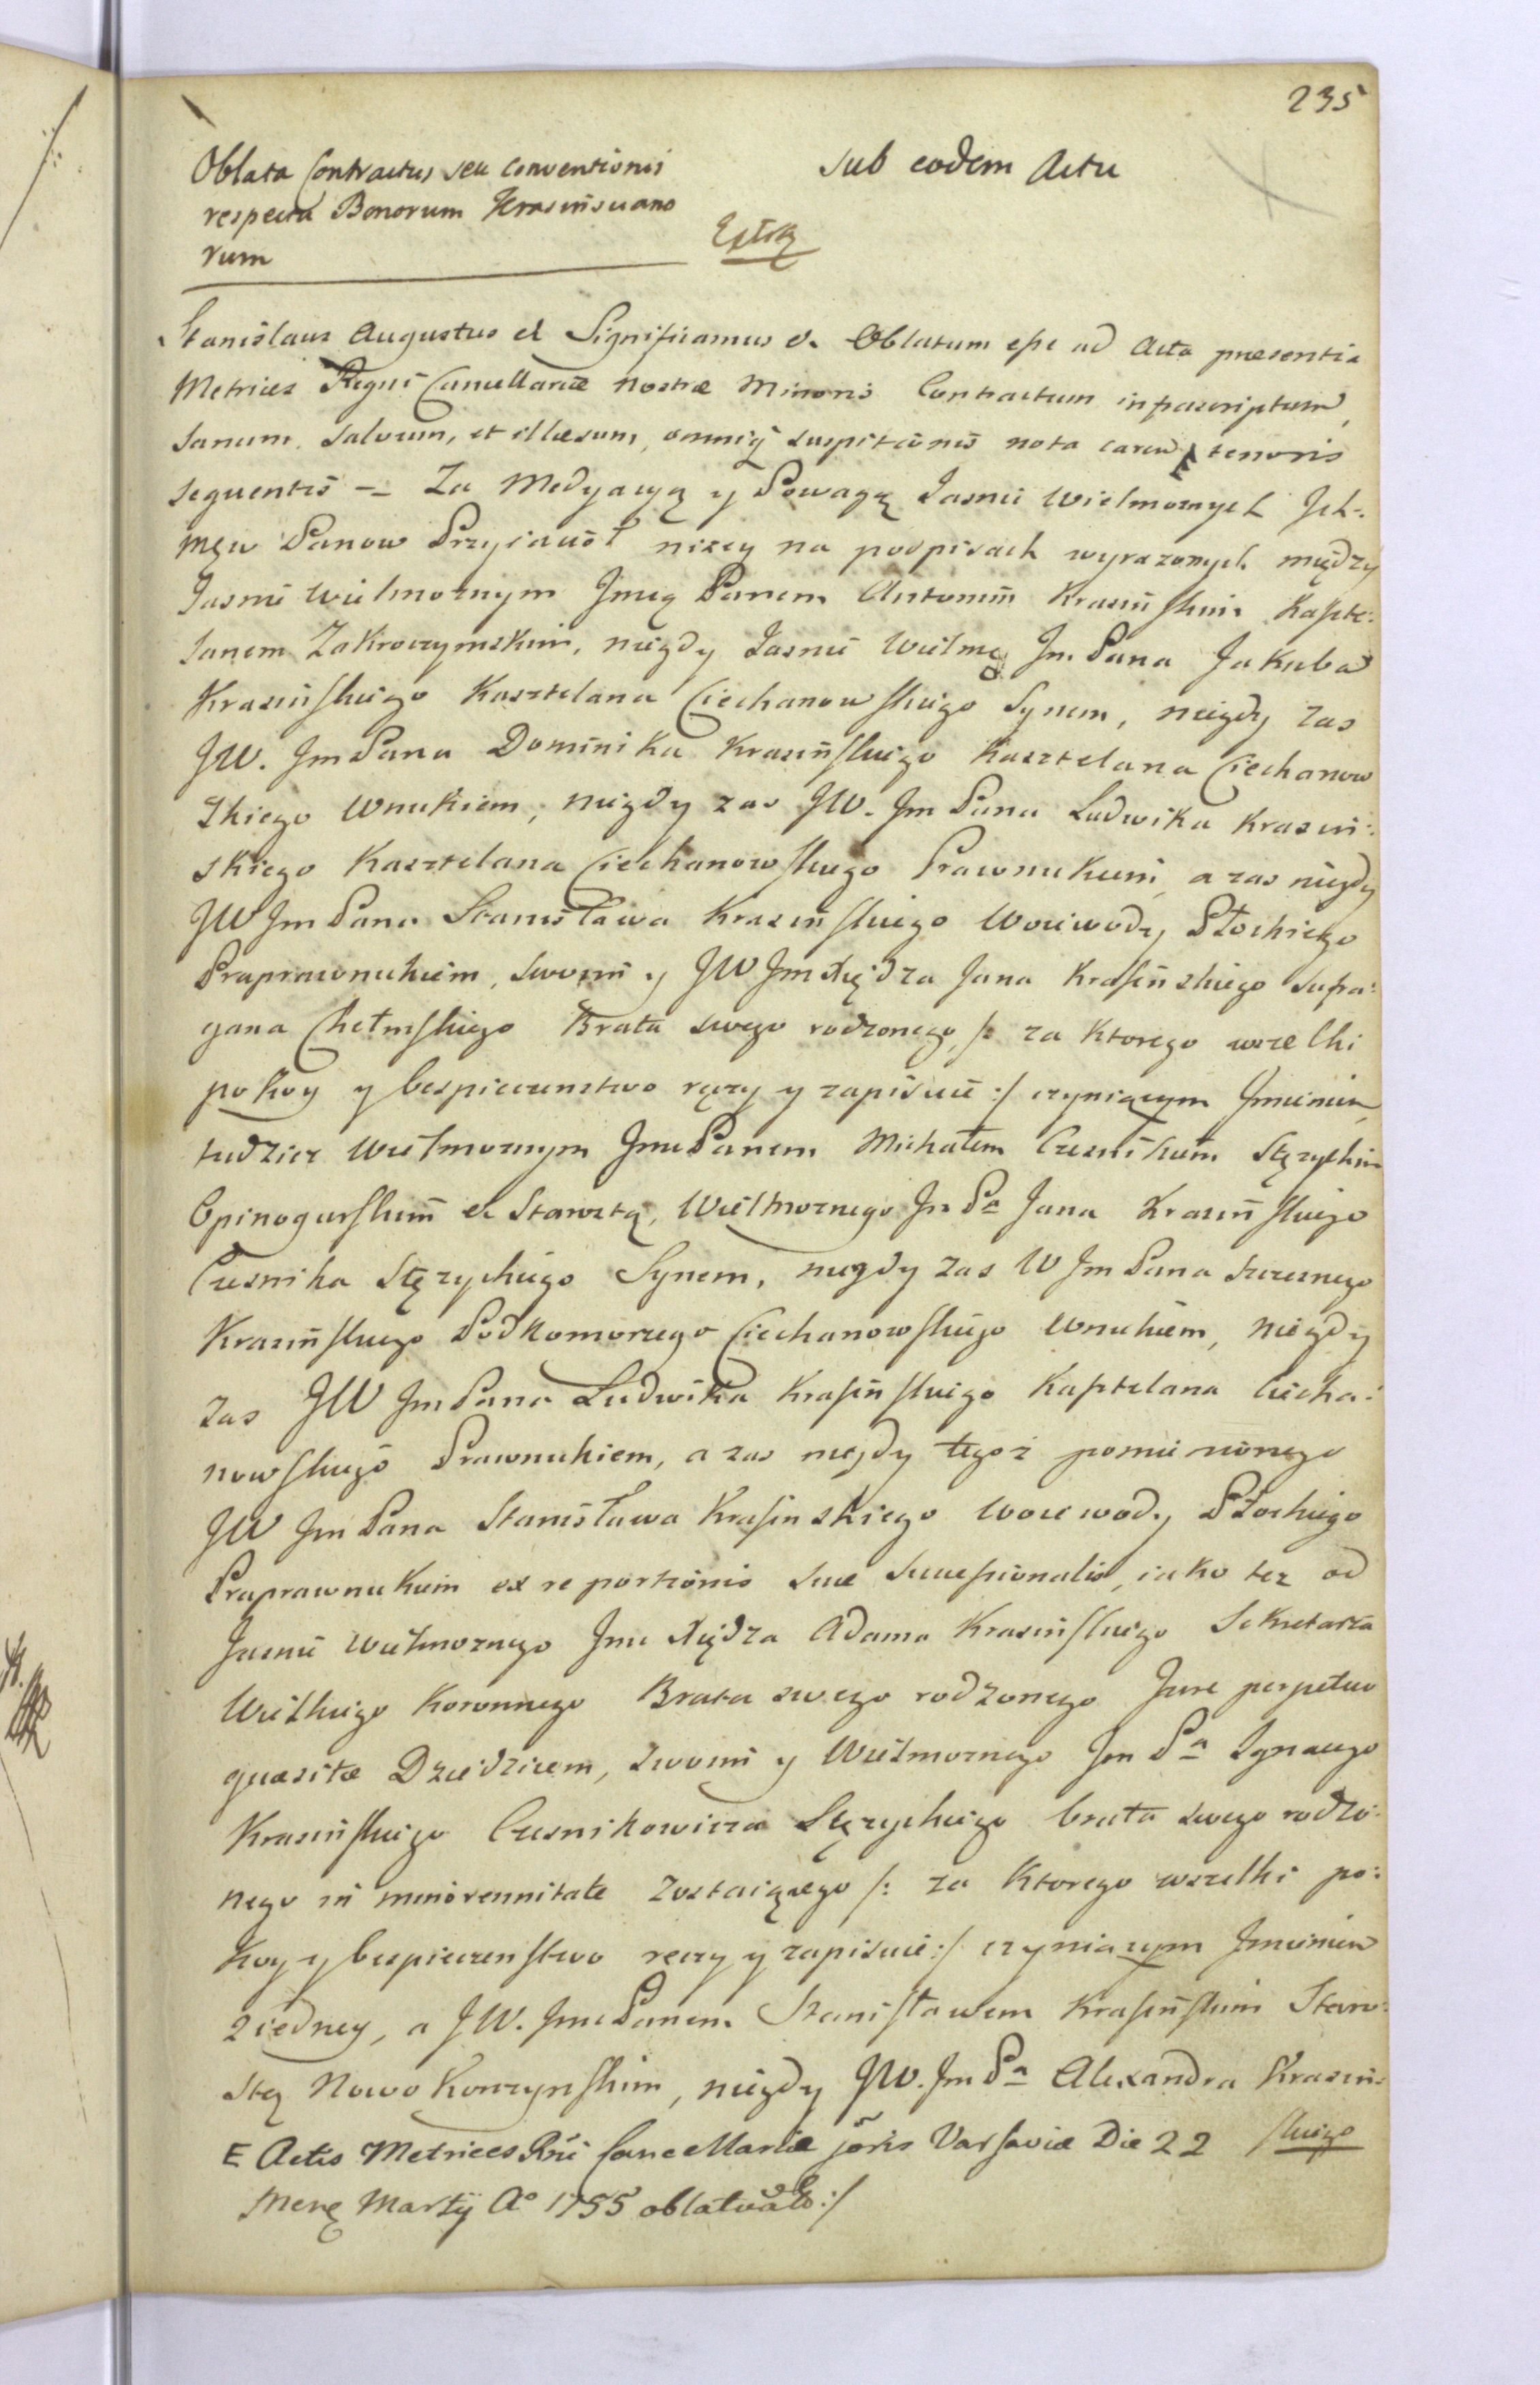 235
Oblata Contractus seu Conventionis
respectu Bonorum Krasinsciano
rum
sub eodem Actu
Stanislaus Augustus et Significamus &. Oblatum esse ad Acta præsentia
Metrices Regni Cancellariæ nostræ Minoris Contractum infrascriptum,
sanum, salvum, et illæsum, omniq suspitionis nota caren tenoris
sequentis -= Za Medyacyą y Powagą Jasnie Wielmoznych Jch-
męw Panow Przyiacioł nizey na podpisach wyrazonych między
Jasnie Wielmoznym Jmcą Panem Antonim Krasinskim Kaszte:
lanem Zakroczymskim, niegdy Jasnie Wielmo Jm Pana Jakuba
Krasinskiego Kasztelana Ciechanowskiego Synem, niegdy zas
JW. Jm Pana Dominika Krasinskiego Kasztelana Ciechanow
skiego Wnukiem, niegdy zas JW. Jm Pana Ludwika Krasin:
skiego Kasztelana Ciechanowskiego Prawnukiem, a zas niegdy
JW Jm Pana Stanisława Krasinskiego Woiewody Płockiego
Praprawnukiem, swoim y JW Jm Xiędza Jana Krasinskiego Sufra:
gana Chełmskiego Brata swego rodzonego, /: za ktorego wszelki
pokoy y bespieczenstwo ręczy y zapisuie :/ czyniącym Jmieniem,
tudziez Wielmoznym Jmc Panem Michałem Czesnikiem Stęzyckim
Opinogurskim et Starostą, Wielmoznego Jm Pa Jana Krasinskiego
Czesnika Stęzyckiego Synem, niegdy zas W Jm Pana Szczesnego
Krasinskiego Podkomorzego Ciechanowskiego Wnukiem, niegdy
zas JW Jm Pana Ludwika Krasinskiego Kasztelana Ciecha:
nowskiego Prawnukiem, a zas niegdy tegoz pomienionego
JW Jm Pana Stanisława Krasinskiego Woiewody Płockiego
Praprawnukiem ex re portionis suæ Successionalis, iako tez od
Jasnie Wielmoznego Jmc Xiędza Adama Krasinskiego Sekretarza
Wielkiego Koronnego Brata swego rodzonego Jure perpetuo
quæsitæ Dziedzicem, swoim y Wielmoznego Jm Pa Ignacego
Krasinskiego Czesnikowicza Stęzyckiego brata swego rodzo:
nego in minorennitate zostaiącego /: za ktorego wszelki po:
koy y bespieczenstwo reczy y zapisuie :/ czyniącym Jmieniem
ziedney, a JW. Jmc Panem Stanisławem Krasinskim Staro:
stą Nowo Korczynskim, niegdy JW. Jm Pa Alexandra Krasin:
skiego
E Actis Metrices Rni Cancellariæ joris Varsaviæ Die 22
Mens Martij Ao 1755 oblatu :/